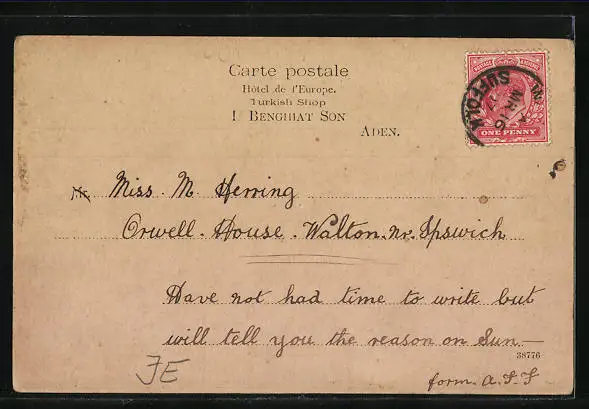 Carte postale
Hôtel de l'Europe.
Turkish Shop
I. BENGHIAT SON
ADEN.
POSTAGE REVENUE
ONE PENNY
SUFFOLK
MR 16
Miss. M. Herring
Orwell. House. Walton. nr. Ipswich
Have not had time to write but
will tell you the reason on Sun.—
38776
from. A.F.F
JE